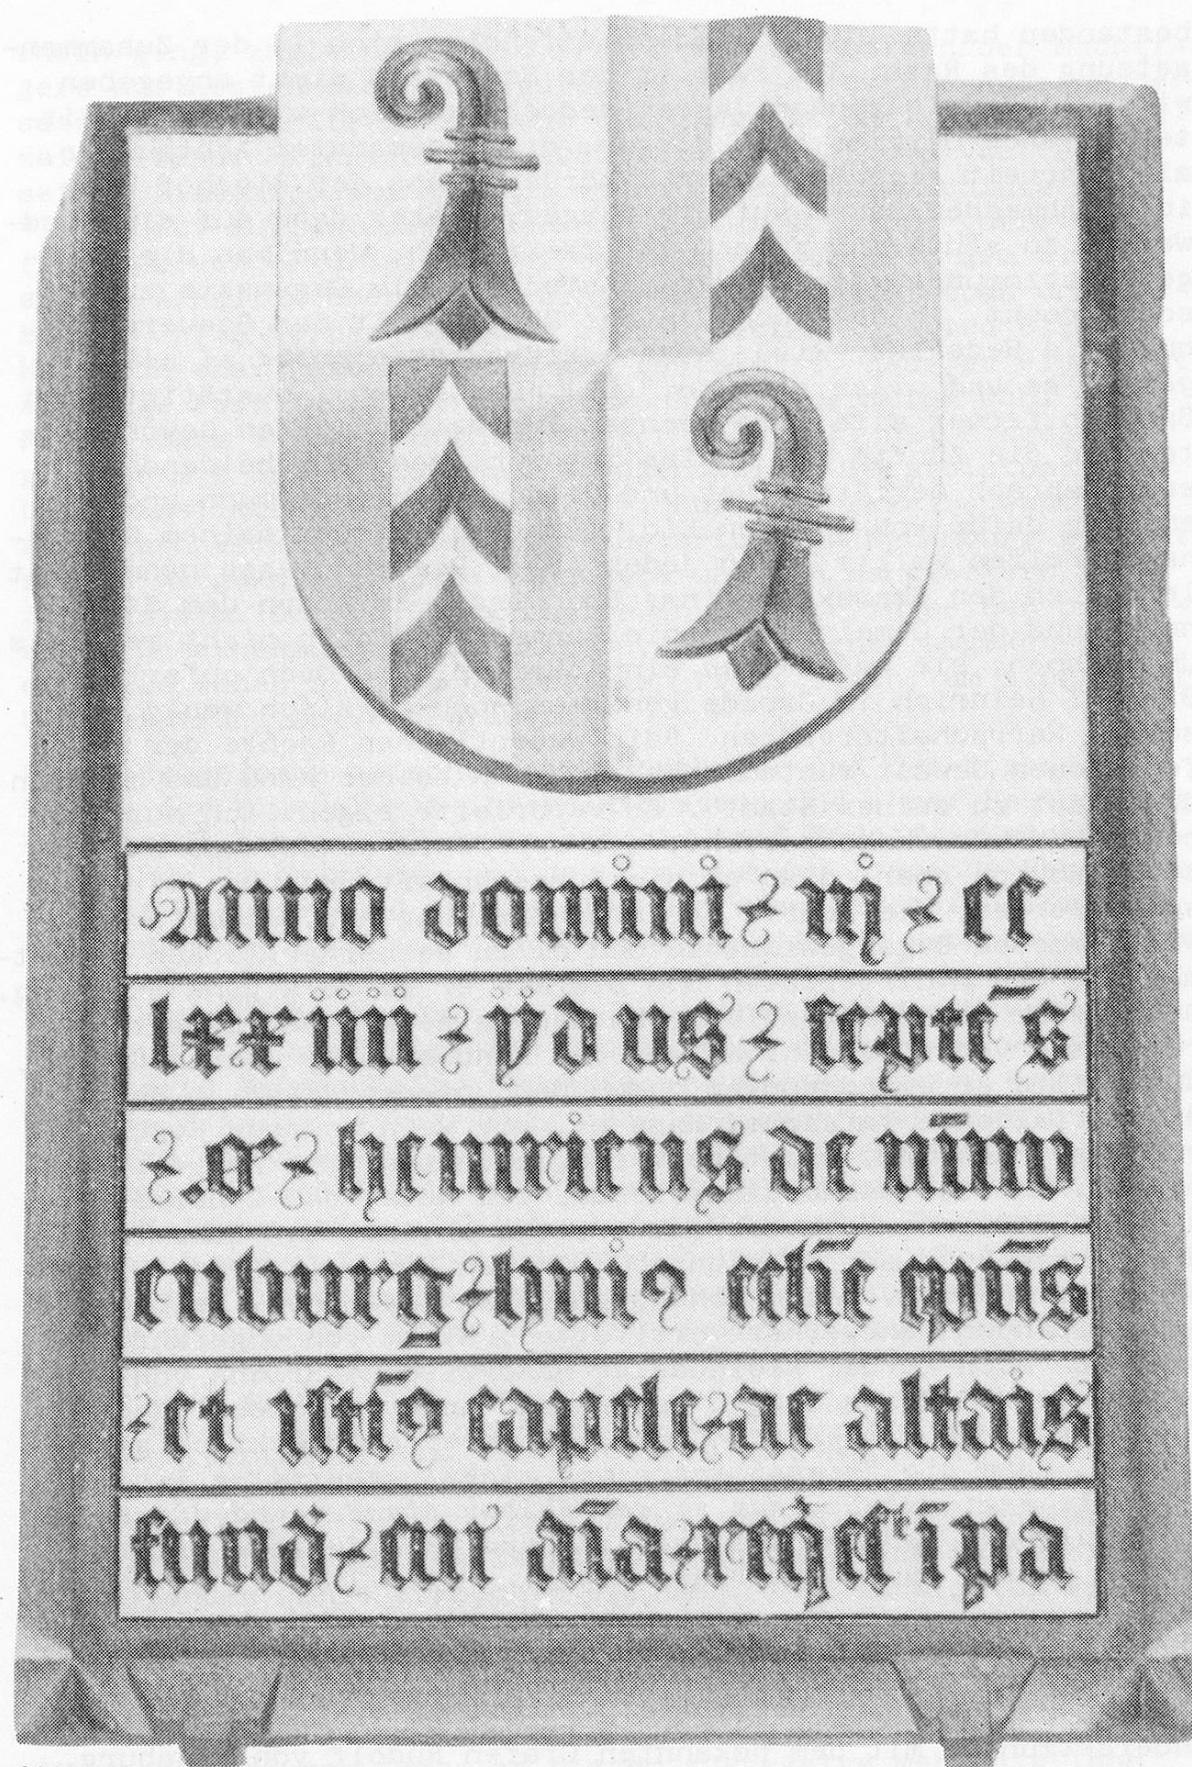 Anno domini m cc
lxxiiii ydus septē s
.o. henricus de nuw
enburg hui⁹ eclīe ep̄us
et isti⁹ capelle ac altais
fund cui aīa req̄est ī pa